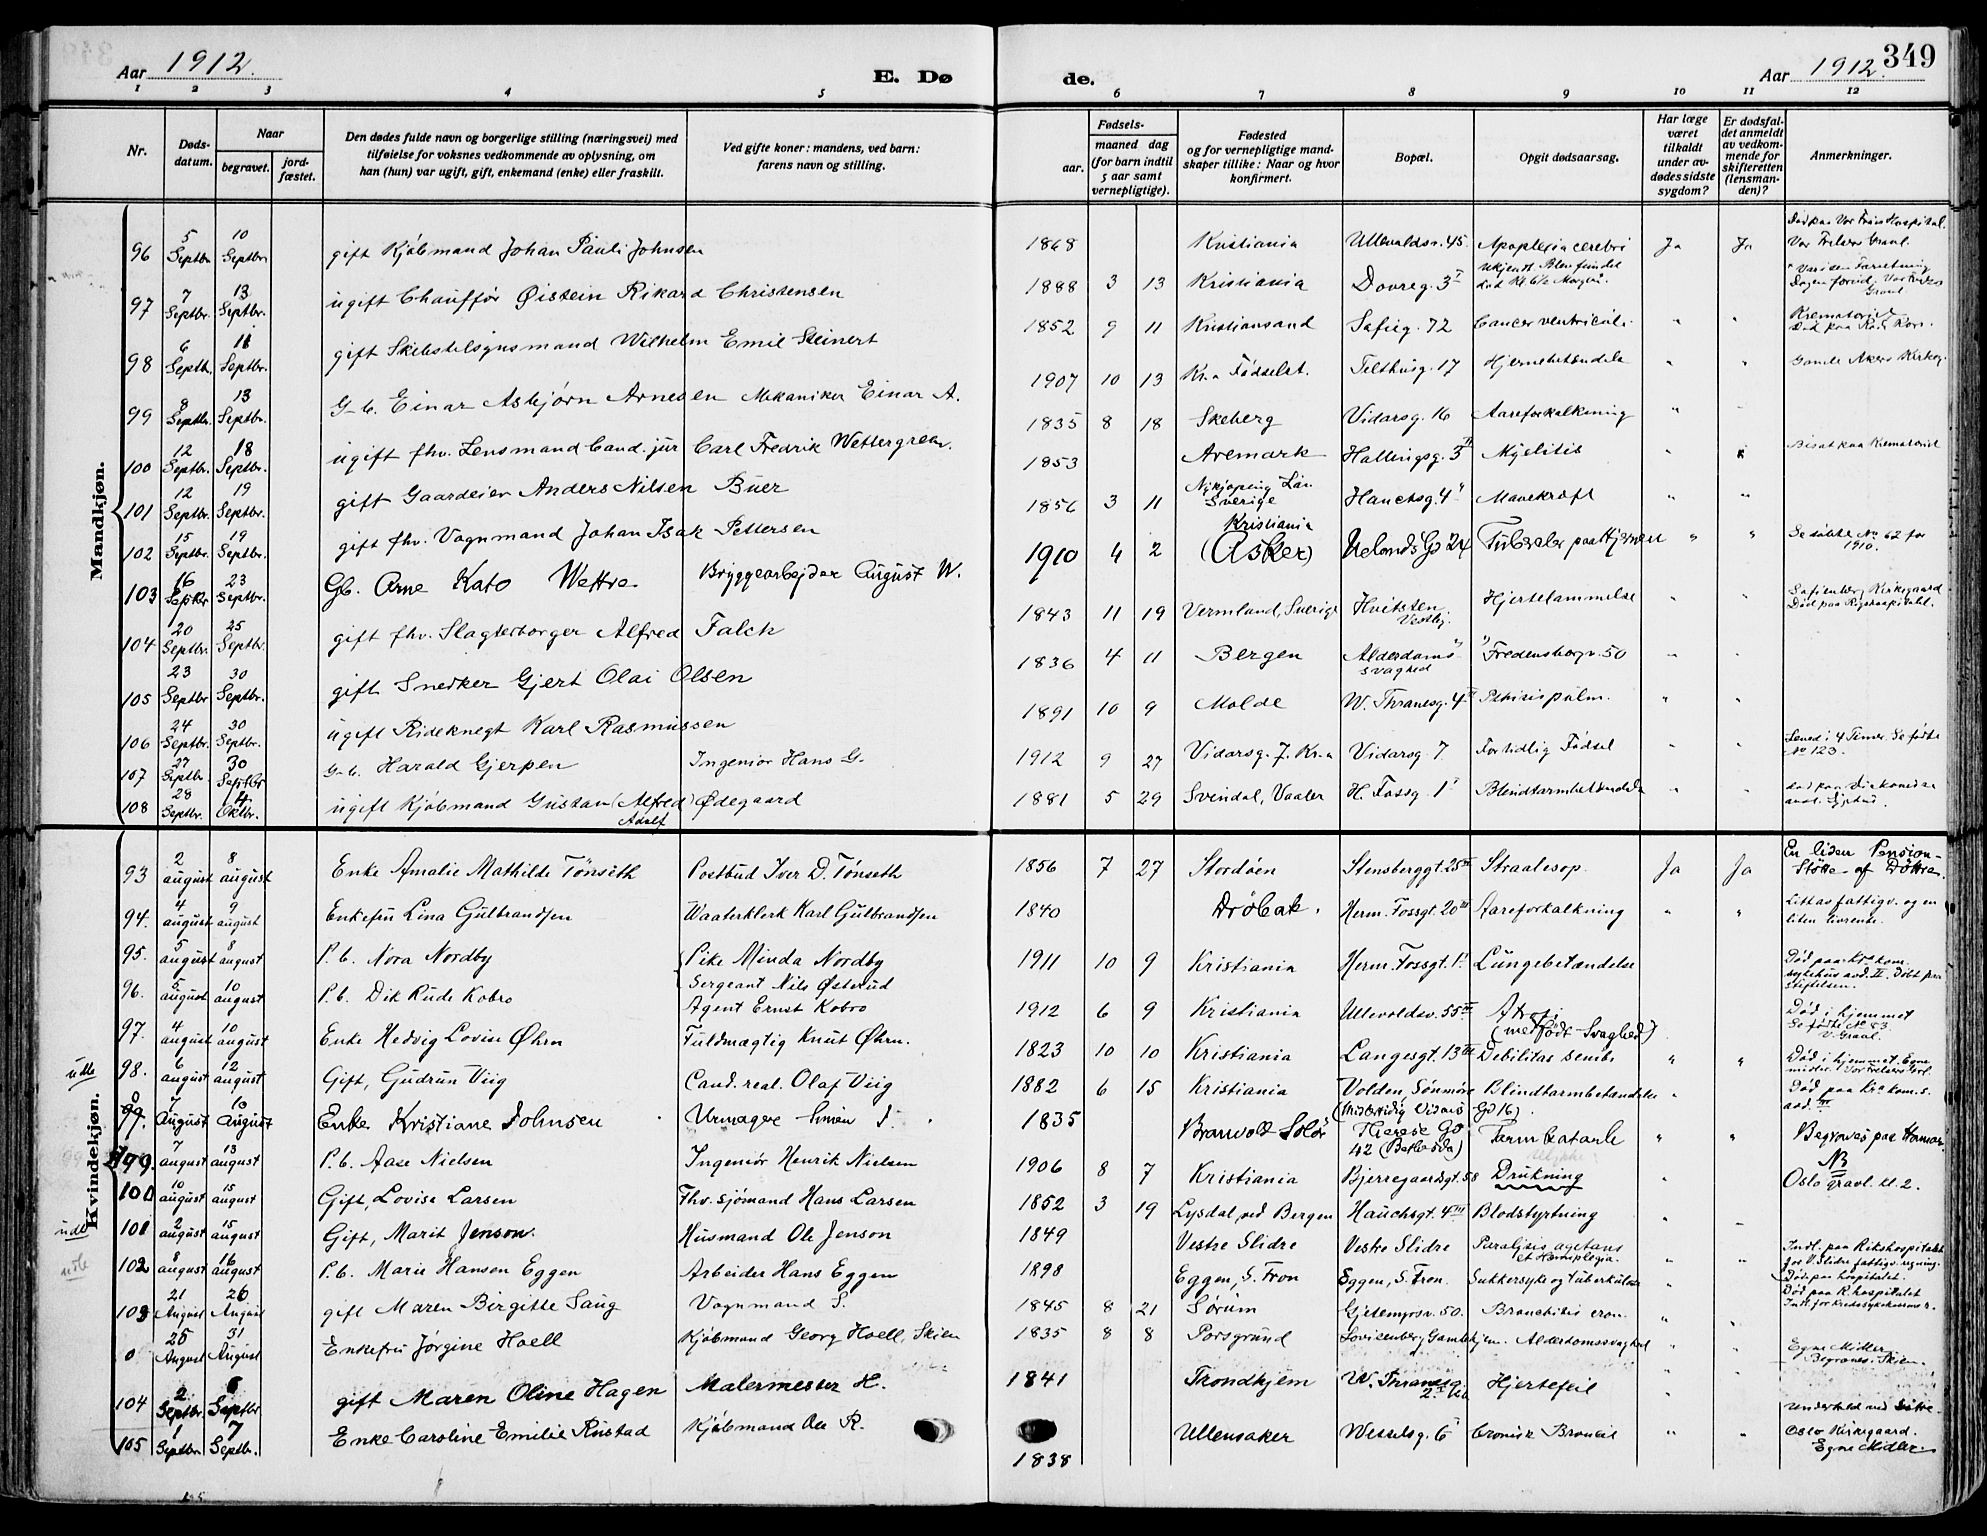 Aar 1912. E. Dø de. Aar 1912. 349
1 2 3 4 5 6 7 8 9 10 11 12
Nr.
Døds-
datum.
Naar
begravet.
jord-
fæstet.
Den dødes fulde navn og borgerlige stilling (næringsvei) med
tilføielse for voksnes vedkommende av oplysning, om
han (hun) var ugift, gift, enkemand (enke) eller fraskilt.
Ved gifte koner: mandens, ved barn:
farens navn og stilling.
Fødsels-
aar.
maaned dag
(for barn indtil
5 aar samt
vernepligtige).
Fødested
og for vernepligtige mand-
skaper tillike: Naar og hvor
konfirmert.
Bopæl.
Opgit dødsaarsag.
Har læge
været
tilkaldt
under av-
dødes sidste
sygdom?
Er dødsfal-
det anmeldt
av vedkom-
mende for
skifteretten
(lensman-
den)?
Anmerkninger.
Mandkjøn.
96 5 Septbr 10 Septbr gift Kjøbmand Johan Pauli Johnsen 1868 Kristiania Ullevaldsv. 45. Apoplexia cerebri Ja Ja Død paa Vor Frues Hospital. Vor Frelsers Gravl.
97 7 Septbr. 13 Septbr. ugift Chauffør Øistein Rikard Christensen 1888 3 13 Kristiania Dovreg. 3 I Ukjendt. Blev fundet død Kl. 6½ Morgen.
98 6 Septbr. 11 Septbr. gift Skibstilsynsmand Wilhelm Emil Steinert 1852 9 11 Kristiansand Sofieg. 72 Cancer ventriculi " " Krematoriet Død paa Røde Kors.
99 8 Septbr. 13 Septbr. G-b. Einar Asbjørn Arnesen Mekaniker Einar A. 1907 10 13 Kr.a Fødselst. Telthusg. 17 Hjernebetændelse " " Gamle Akers Kirkeg.
100 12 Septbr. 18 Septbr. ugift fhv. Lensmand Cand. jur Carl Fredrik Wettergreen. 1835 8 18 Skeberg Vidarsg. 16 Aareforkalkning " Bisat paa Krematoriet
101 12 Septbr. 19 Septbr. gift Gaardeier Anders Nilsen Buer 1853 Aremark Hallingsg. 3 II Myelitis "
102 15 Septbr. 19 Septbr. gift fhv. Vognmand Johan Isak Pettersen 1856 3 11 Nykjøping Län Sverige Hauchsg. 4 Mavekræft " "
103 16 Septbr 23 Septbr. Gb. Arne Kato Wettre Bryggearbejder August W. 1910 4 2 Kristiania (Asker) Uelands Gd 24 Tuberkler paa Hjernen " " Se døbte No 62 for 1910.
104 20 Septbr. 25 Septbr. gift fhv. Slagterborger Alfred Falck 1843 11 19 Vermland, Sverige Hvitsten, Vestby. Hjertelammelse " " Sofienberg Kirkegaard Død paa Rigshospitalet.
105 23 Septbr. 30 Septbr. gift Snedker Gjert Olai Olsen 1836 4 11 Bergen Alderdoms- svaghed Fredensborgv. 50 "
106 24 Septbr. 30 Septbr. ugift Rideknegt Karl Rasmussen 1891 10 9 Molde W. Thranesg. 4 II Phthisis pulm. " "
107 27 Septbr. 30 Septbr G-b. Harald Gjerpen Ingeniør Hans G. 1912 9 27 Vidarsg. 7. Kr.a Vidarsg. 7 For tidlig Fødsel " " Leved i 4 Timer. Se fødte No 123.
108 28 Septbr. 4 Oktbr. ugift Kjøbmand Gustav (Alfred) Adolf Ødegaard 1881 5 29 Svindal, Vaaler H. Fossg. 1 Blindtarmbetændelse " " død paa Diakonisse
Kvindekjøn.
93 2 august 8 august Enke Amalie Mathilde Tönseth Postbud Iver D. Tönseth 1856 7 27 Stordøen Stensberggt. 25 III Straalesop. Ja Ja En liden Pension- Støtte af Døttre.
94. 4 august 9 august Enkefru Lina Gulbrandsen Vaaterklerk Karl Gulbrandsen 1840 Drøbak. Herm. Fossgt. 20 III Aareforkalkning " " Littas fattigv. og en liten livrente.
95. 5 august 8 august P. b. Nora Nordby Pike Minda Nordby Sergeant Nils Østerud 1911 10 9 Kristiania Herm. Fossgt. 1 Lungebetændelse Død paa Kra kom. sykehus avd. II. Døbt paa stiftelsen.
96. 5 august 10 august P. b. Dik Rude Kobro Agent Ernst Kobro 1912 6 9 Kristiania Ullevoldsv. 55 III Atrofi (medfødt Svaghed) Død i hjemmet Se fødte No 83. V. Gravl.
97. 4 august 10 august Enke Hedvig Lovise Øhrn Fuldmægtig Knut Øhrn. 1823 10 10 Kristiania Langesgt. 13 III Debilitas senilis " " Død i hjemmet. Egne midler.
ude 98. 6 august 12 august Gift, Gudrun Viig Cand. real. Olaf Viig 1882 6 15 Kristiania Volden, Søndmøre Blindtarmbetændelse " Død paa Kra kom. s. avd. III
99. 7 August 10 August Enke Kristiane Johnsen Urmager Simen J. 1835 Brandvold Solør (Midlertidig Vidars Gd 16). Therese Gd 42 (Bethesda) Tarmkatarh " " Begraves paa Hamar.
99. 7 august 13 august P. b. Aase Nielsen Ingeniør Henrik Nielsen 1906 8 7 Kristiania Bjerregaardsgt. 58 Drukning " NB
100 10 august 15 august Gift, Lovise Larsen Fhv. sjömand Hans Larsen 1852 3 19 Lysdal, ved Bergen Hauchsgt. 4 III Blodstyrtning Oslo gravl. kl. 2.
ude 101 2 august 15 august Gift, Marit Jenson. Husmand Ole Jenson 1849 Vestre Slidre Vestre Slidre Paralysis agitans et Hemiplegia. " Indl. paa Rikshospitalet for V. Slidre fattigv. regning. Død paa hospitalet.
ude 102 8 august 16 august P. b. Marie Hansen Eggen Arbeider Hans Eggen 1898 Eggen, S. Fron Eggen, S. Fron. Sukkersyke og tuberkulose " " Død paa R. hospitalet
103 21 August 26 August gift Maren Birgitte Saug Vognmand S. 1845 8 21 Sørum Gjetemyrsv. 50. Bronchitis cron.
0 25 August 31 August Enkefru Jørgine Hoell Kjøbmand Georg Hoell, Skien 1835 8 8 Porsgrund Lovisenberg Gamlehjem. Alderdomssvaghed " " Egne Midler Begraves i Skien.
104 2 Septbr. 6 Septbr gift Maren Oline Hagen Malermester H. 1841 Trondhjem W. Thranesg. Hjertefeil "
105 1 Septbr. 7 Septbr. Enke Caroline Emilie Rustad Kjøbmand Ole R. 1838 Ullensaker Wesselsg. 6 Cronisk Bronkit " " Oslo Kirkegaard. Egne Midler.